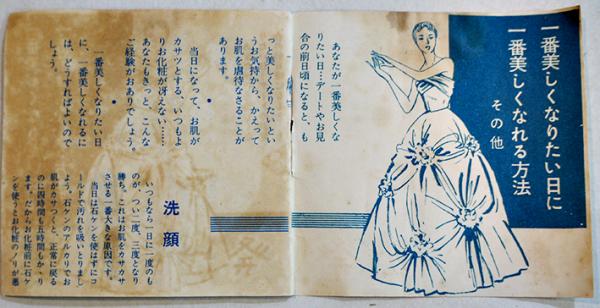 一番美しくなりたい日に
一番美しくなれる方法
その他
あなたが一番美しくな
りたい日…デートやお見
合の前日頃になると、も
っと美しくなりたいとい
うお気持から、かえって
お肌を虐待なさることが
あります。
当日になって、お肌が
カサツとする、いつもよ
りお化粧が冴えない……
あなたもきっと、こんな
ご経験がおありでしょう。
一番美しくなりたい日
に、一番美しくなれるに
は、どうすればよいので
しょう。
洗顔
いつもなら一日に一度のも
のが、つい二度、三度となり
勝ち、これはお肌をカサカサ
させる一番大きな原因です。
当日は石ケンを使はずにコ
ールドで汚れを吸いとりまし
よう。石ケンのアルカリでお
肌がカサつくと、正常に戻る
のに四時間も五時間もかゝり
ます。だからお化粧前に石ケ
ンを使うとお化粧のノリが悪